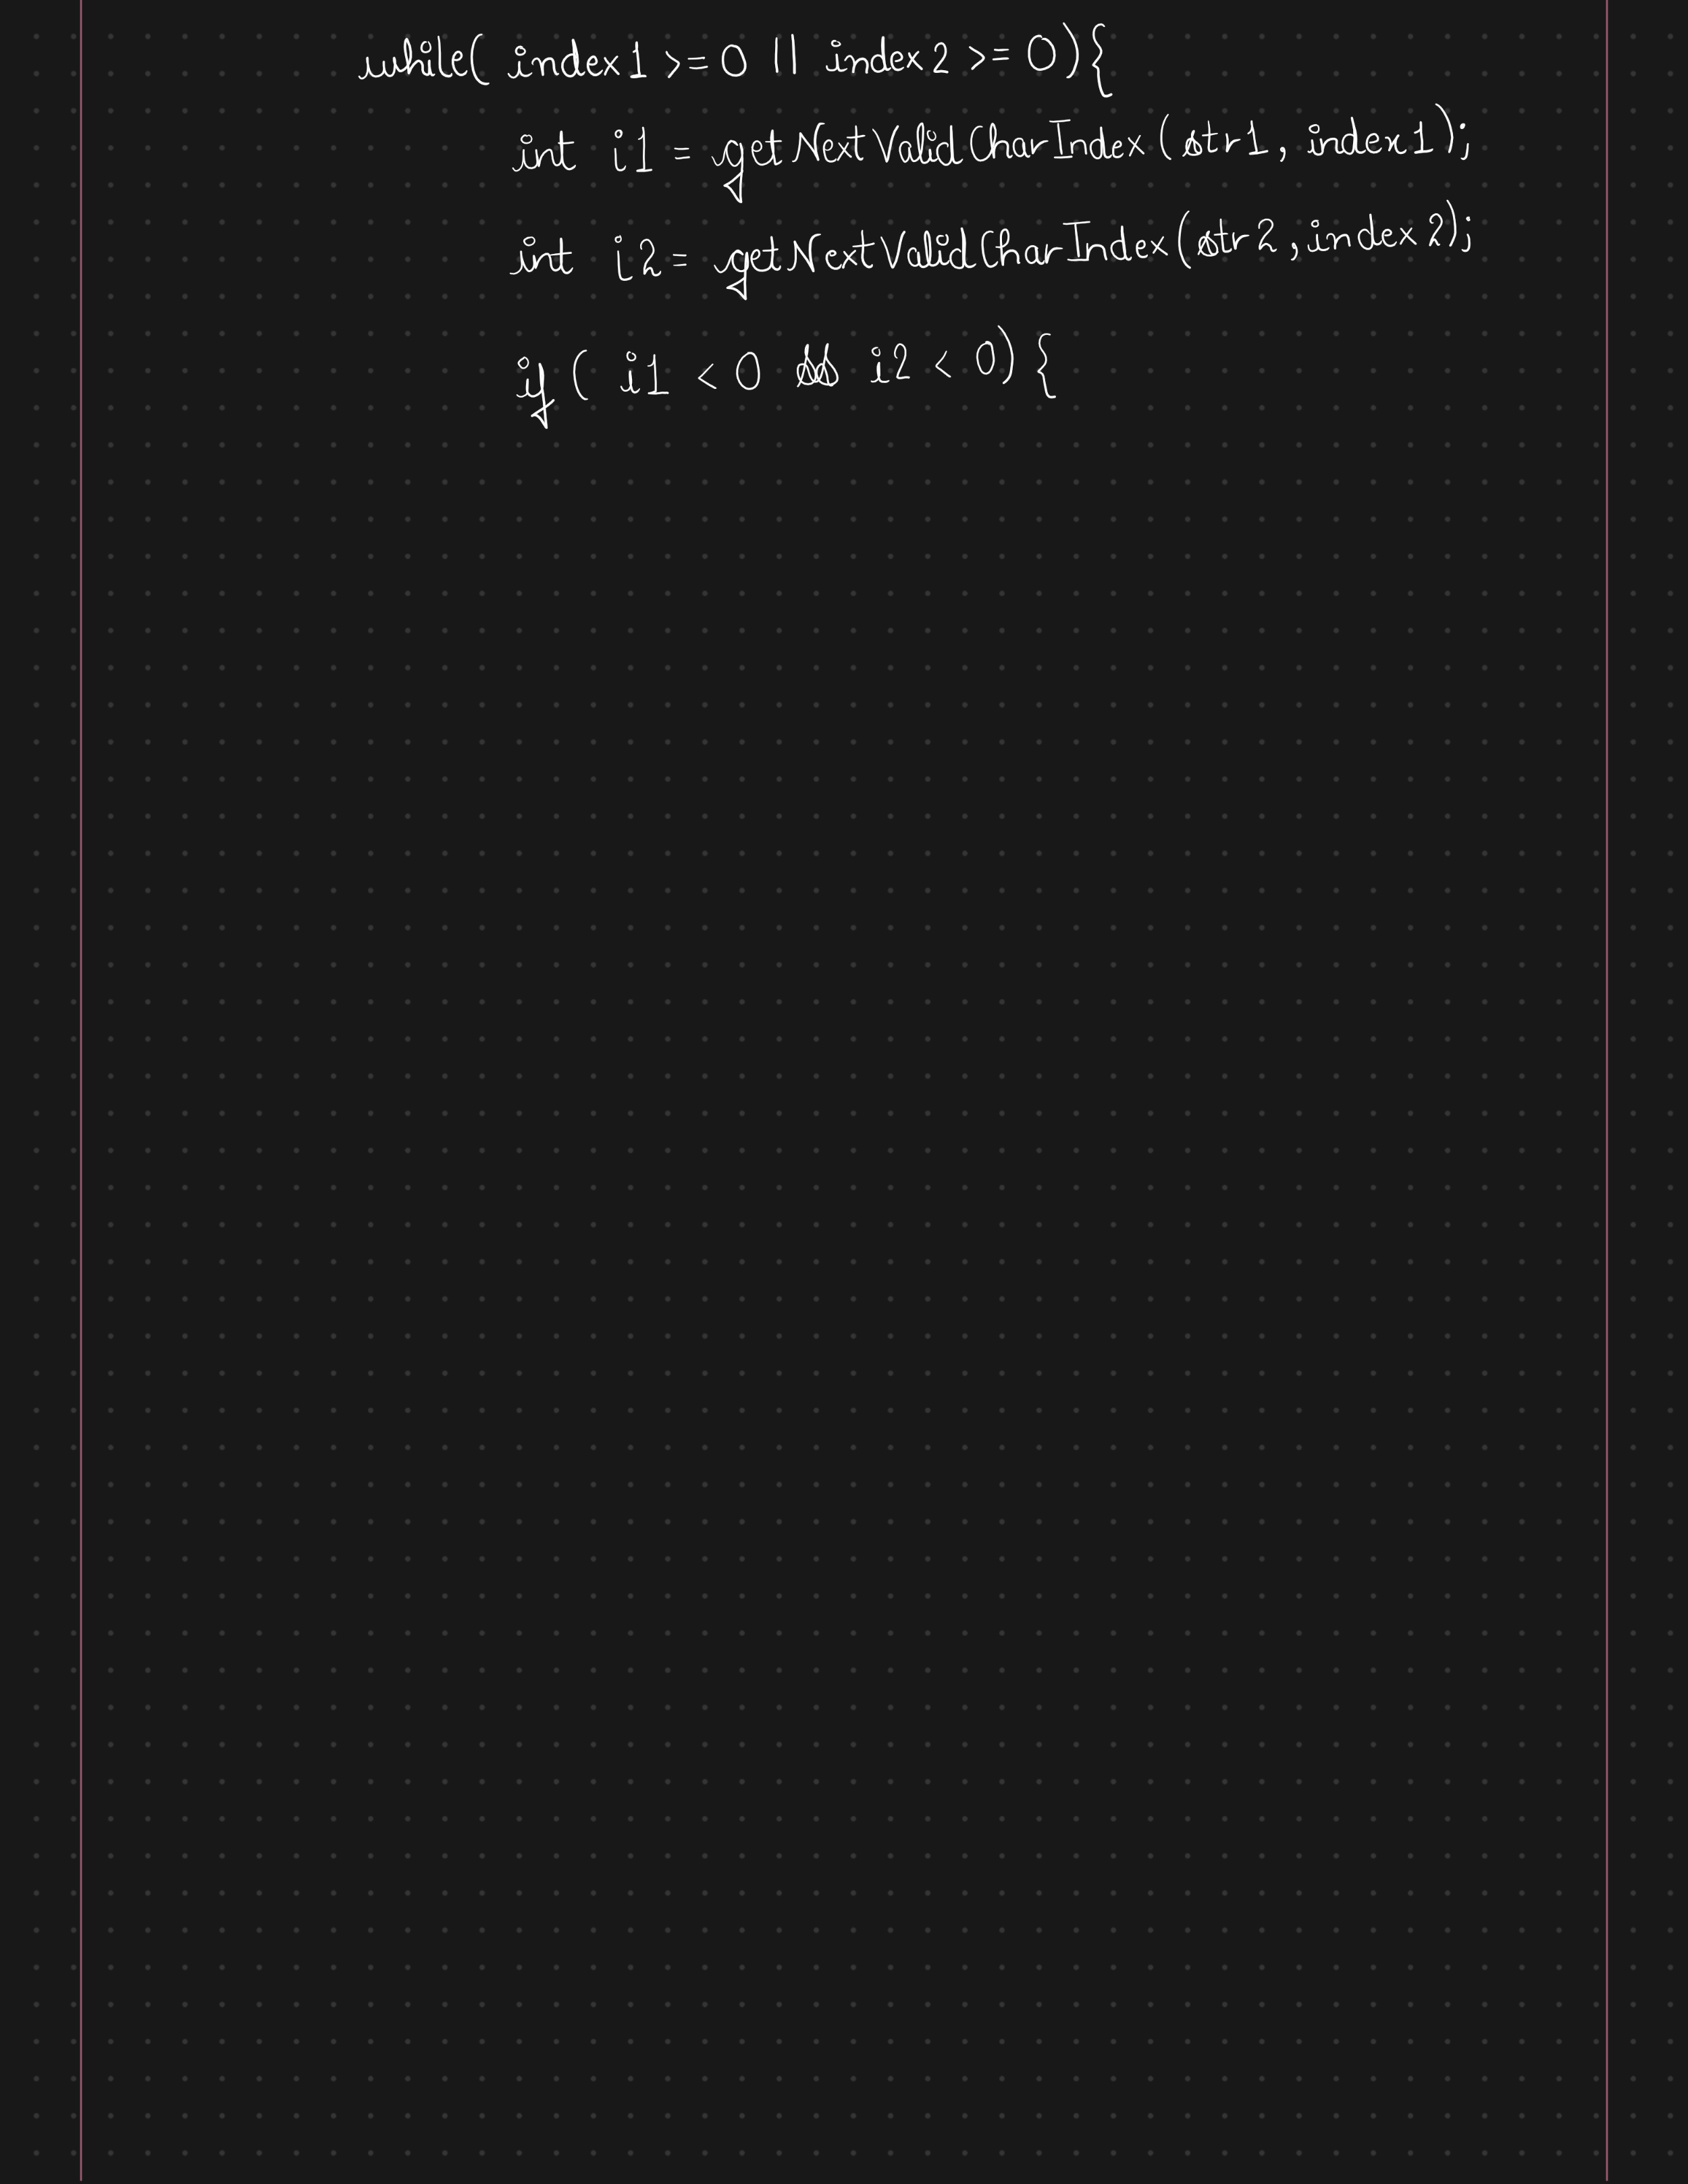 while( index1 >= 0 || index2 >= 0)){
int i1 = getNextValidCharIndex(str1, index1);
int i2 = getNextValidCharIndex(str2, index2);
if( i1 < 0 && i2 < 0){